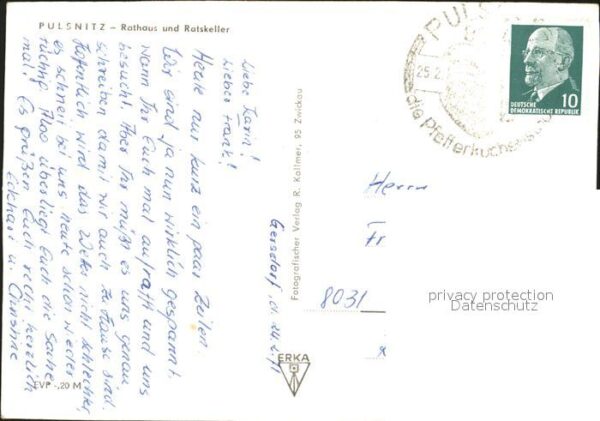 PULSNITZ – Rathaus und Ratskeller
Gersdorf, d. 24.2.71
Liebe Karin!
Lieber Frank!
Heute nur kurz ein paar Zeilen.
Wir sind ja nun wirklich gespannt
wann Ihr Euch mal aufrafft und uns
besucht. Aber Ihr müßt es uns genau
schreiben damit wir auch zu Hause sind.
Hoffentlich wird das Wetter nicht schlechter,
es schneit bei uns heute schon wieder
tüchtig. Also überlegt Euch die Sache
mal! Es grüßen Euch recht herzlich
Eckhart u.
EVP -,20 M
Fotografischer Verlag R. Kallmer, 95 Zwickau
ERKA
PULS
25.2.
die Pfefferkuchen
DEUTSCHE
DEMOKRATISCHE REPUBLIK
10
Herrn
Fr
8031
privacy protection
Datenschutz